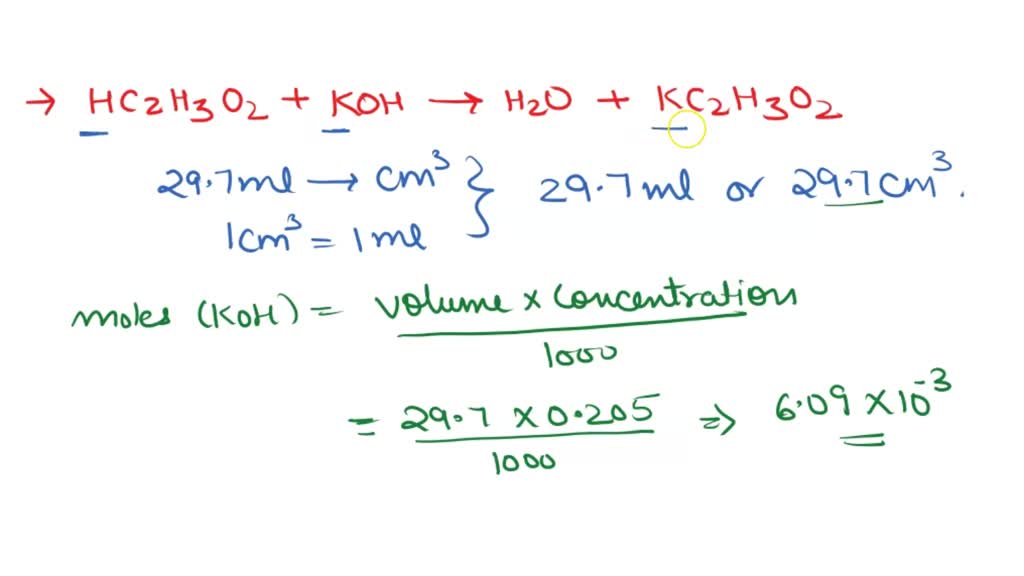 → HC2H3O2 + KOH → H2O + KC2H3O2
29.7ml → cm³ } 29.7ml or 29.7cm³.
1cm³ = 1ml
moles (KOH) = volume × concentration
1000
= 29.7 × 0.205 ⇒ 6.09 × 10⁻³
1000